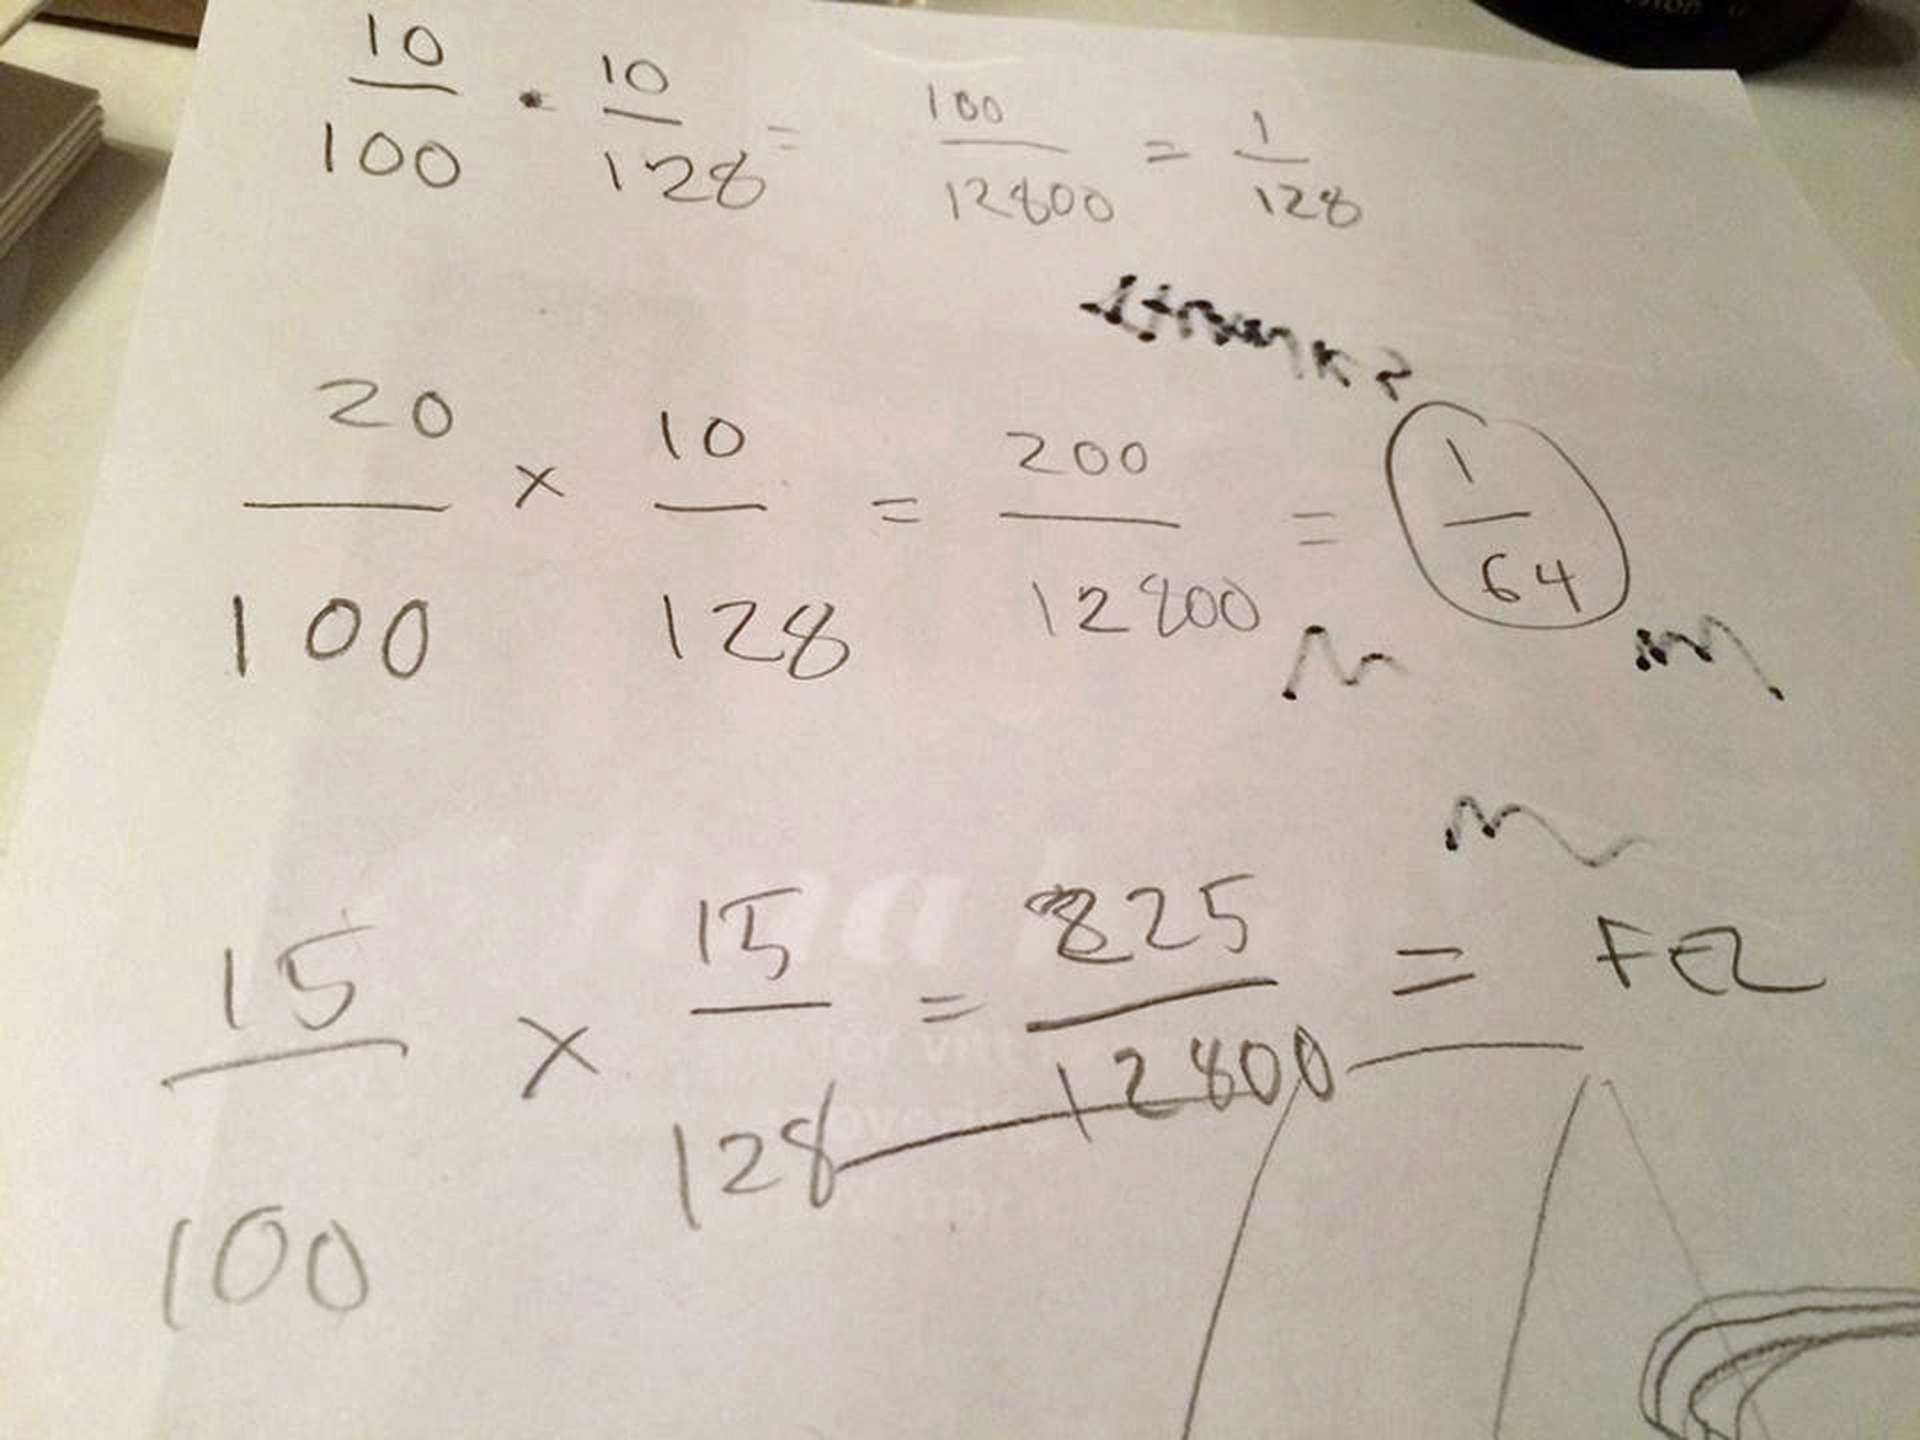 10/100 · 10/128 = 100/12800 = 1/128
20/100 × 10/128 = 200/12800 = 1/64
15/100 × 15/128 = 225/12800 = FEZ